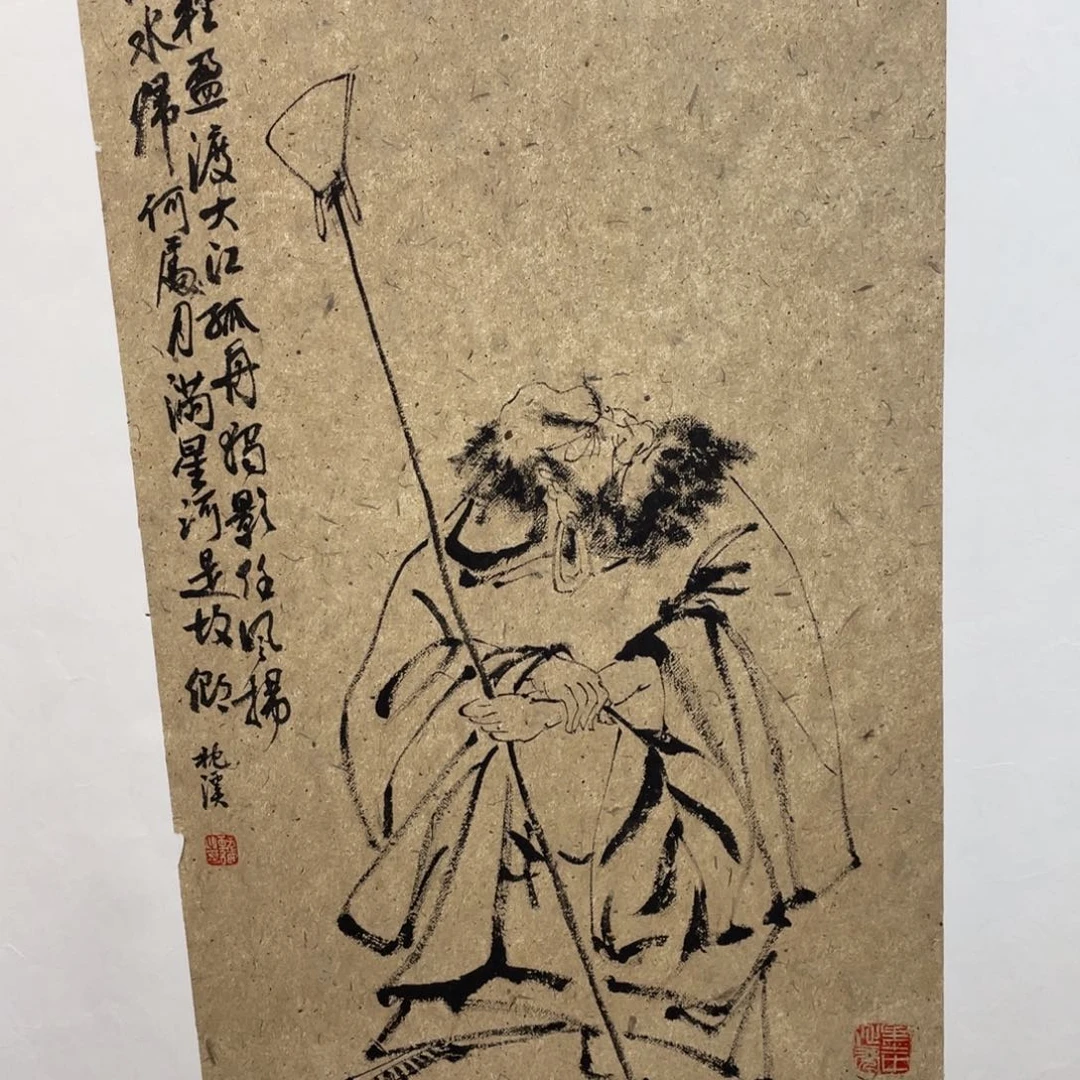 輕盈渡大江孤舟獨影任風揚
水歸何處月滿星河是故鄉